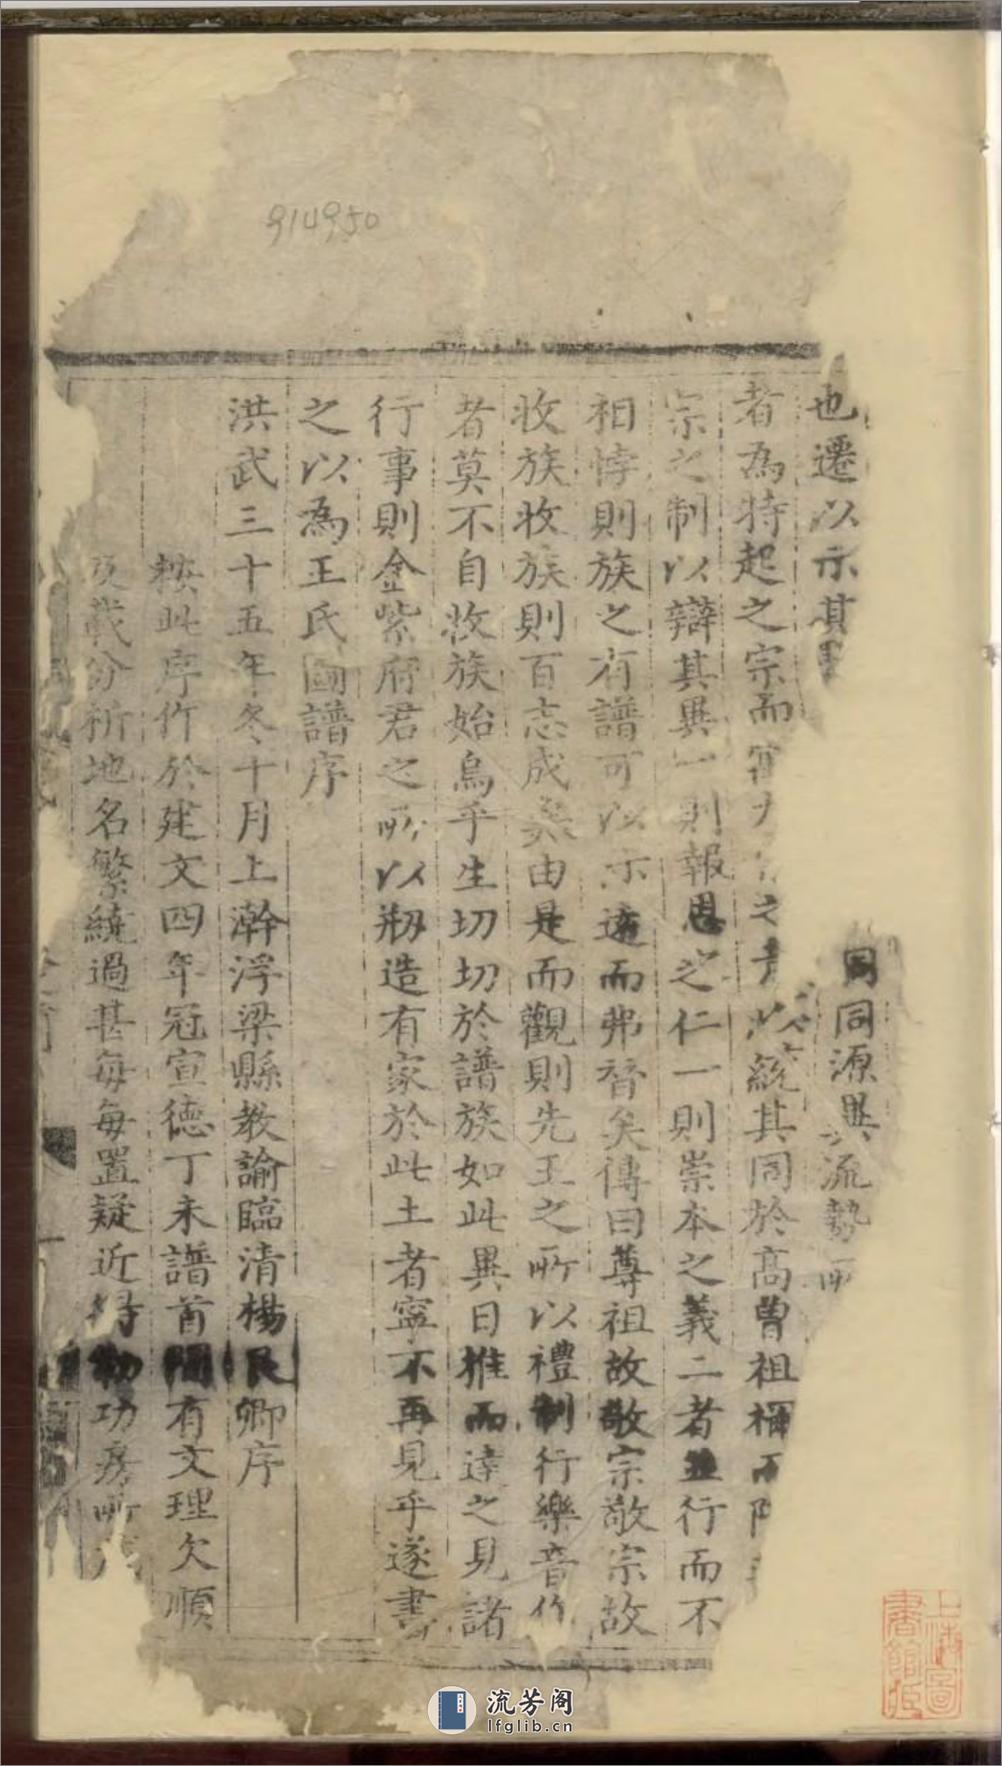 914950
也遷以示其同同源異流勢所
者為特起之宗而之以統其同於高曾祖禰而
宗之制以辯其異一則報恩之仁一則崇本之義二者並行而不
相悖則族之有譜可以示遠而弗替矣傳曰尊祖故敬宗敬宗故
收族收族則百志成矣由是而觀則先王之所以禮制行樂音作
者莫不自收族始烏乎生切切於譜族如此異日推而達之見諸
行事則金紫府君之所以剏造有家於此土者寧不再見乎遂書
之以為王氏國譜序
洪武三十五年冬十月上澣浮梁縣教諭臨清楊民卿序
按此序作於建文四年冠宣德丁未譜首間有文理欠順
及載分析地名繁繞過甚每每置疑近得勒功房所
上海圖書館藏
流芳阁
lfglib.cn